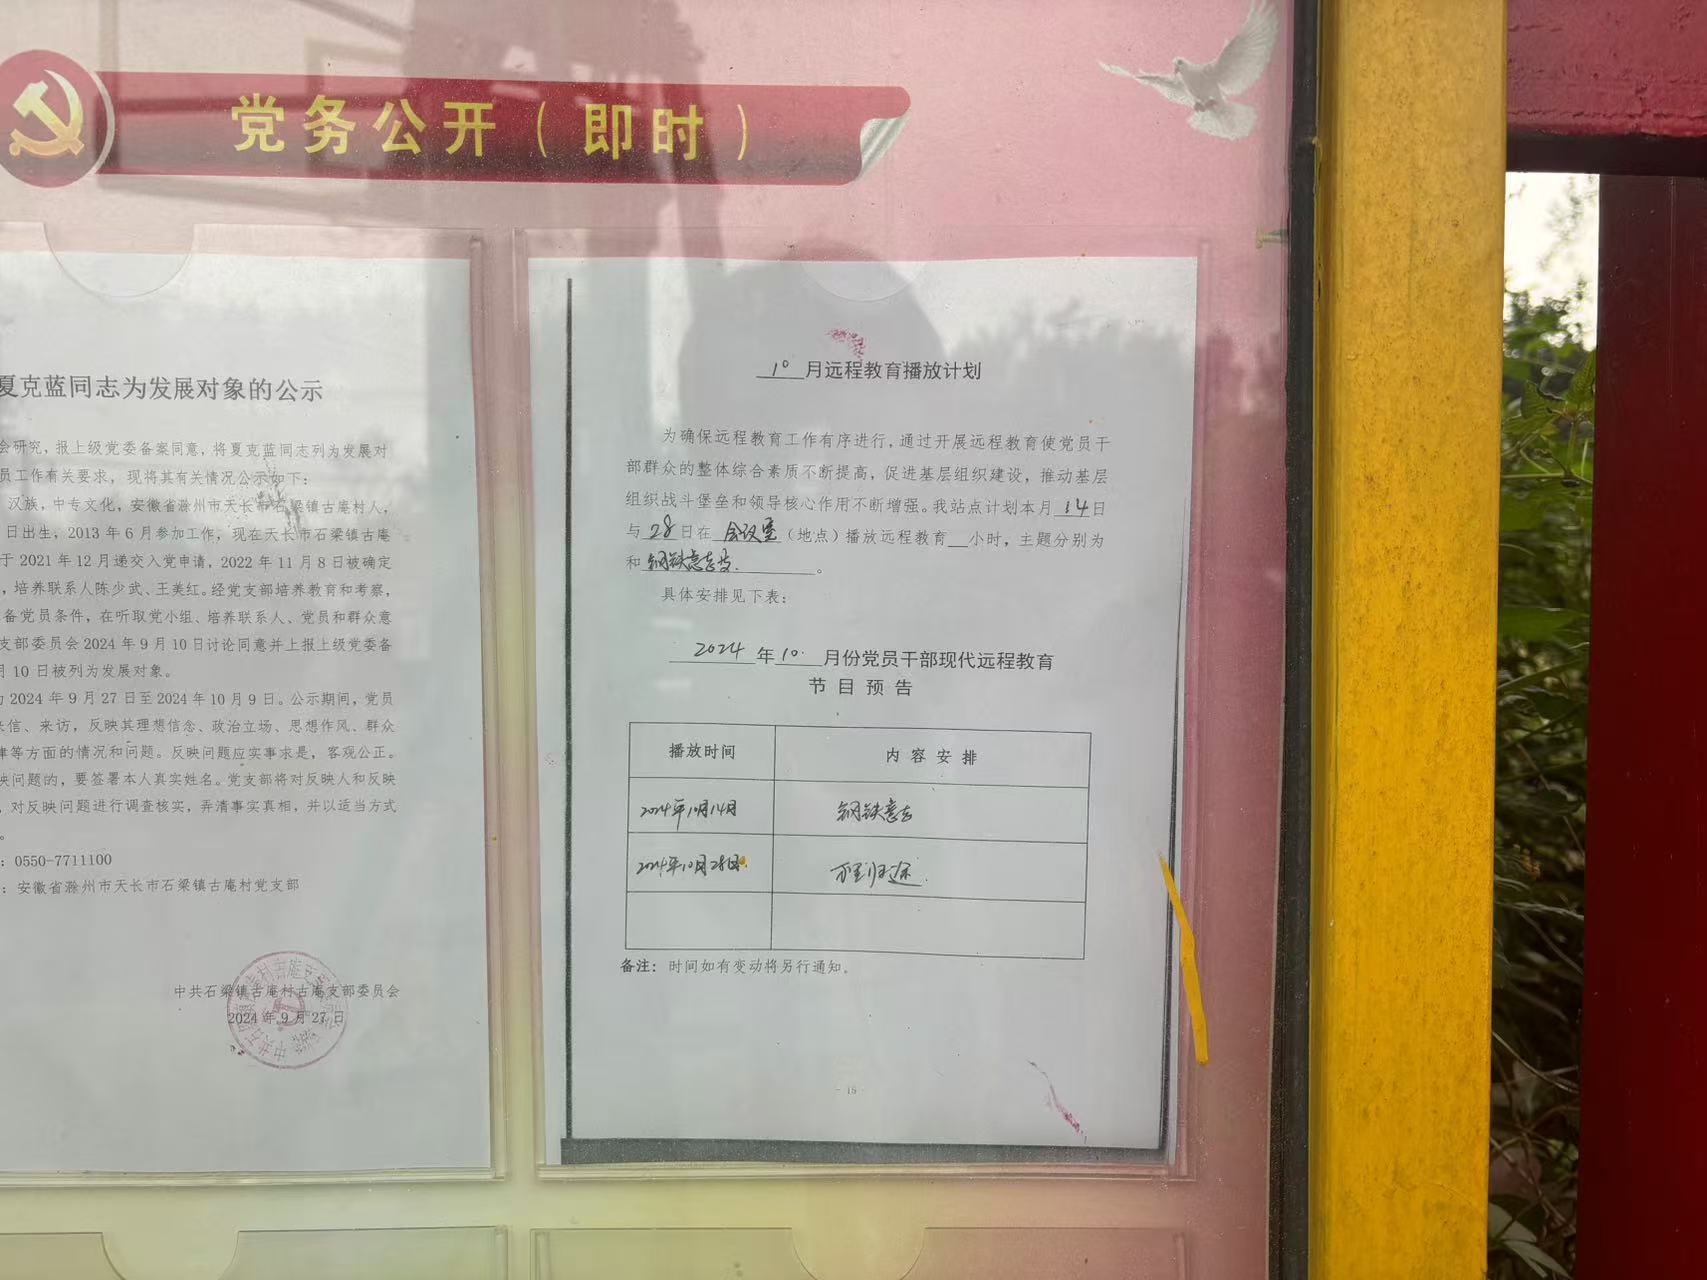 党务公开（即时）
夏克蓝同志为发展对象的公示
会研究，报上级党委备案同意，将夏克蓝同志列为发展对
员工作有关要求，现将其有关情况公示如下：
汉族，中专文化，安徽省滁州市天长市石梁镇古庵村人，
日出生，2013年6月参加工作，现在天长市石梁镇古庵
于2021年12月递交入党申请，2022年11月8日被确定
，培养联系人陈少武、王美红。经党支部培养教育和考察，
备党员条件，在听取党小组、培养联系人、党员和群众意
支部委员会2024年9月10日讨论同意并上报上级党委备
月10日被列为发展对象。
为2024年9月27日至2024年10月9日。公示期间，党员
来信、来访，反映其理想信念、政治立场、思想作风、群众
律等方面的情况和问题。反映问题应实事求是，客观公正。
映问题的，要签署本人真实姓名。党支部将对反映人和反映
，对反映问题进行调查核实，弄清事实真相，并以适当方式
。
：0550-7711100
：安徽省滁州市天长市石梁镇古庵村党支部
中共石梁镇古庵村古庵支部委员会
2024年9月27日
10月远程教育播放计划
为确保远程教育工作有序进行，通过开展远程教育使党员干
部群众的整体综合素质不断提高，促进基层组织建设，推动基层
组织战斗堡垒和领导核心作用不断增强。我站点计划本月14日
与28日在会议室（地点）播放远程教育__小时，主题分别为
和钢铁意志。
具体安排见下表：
2024年10月份党员干部现代远程教育
节目预告
播放时间 内容安排
2024年10月14日 钢铁意志
2024年10月28日 万里归途
备注：时间如有变动将另行通知。
- 15 -